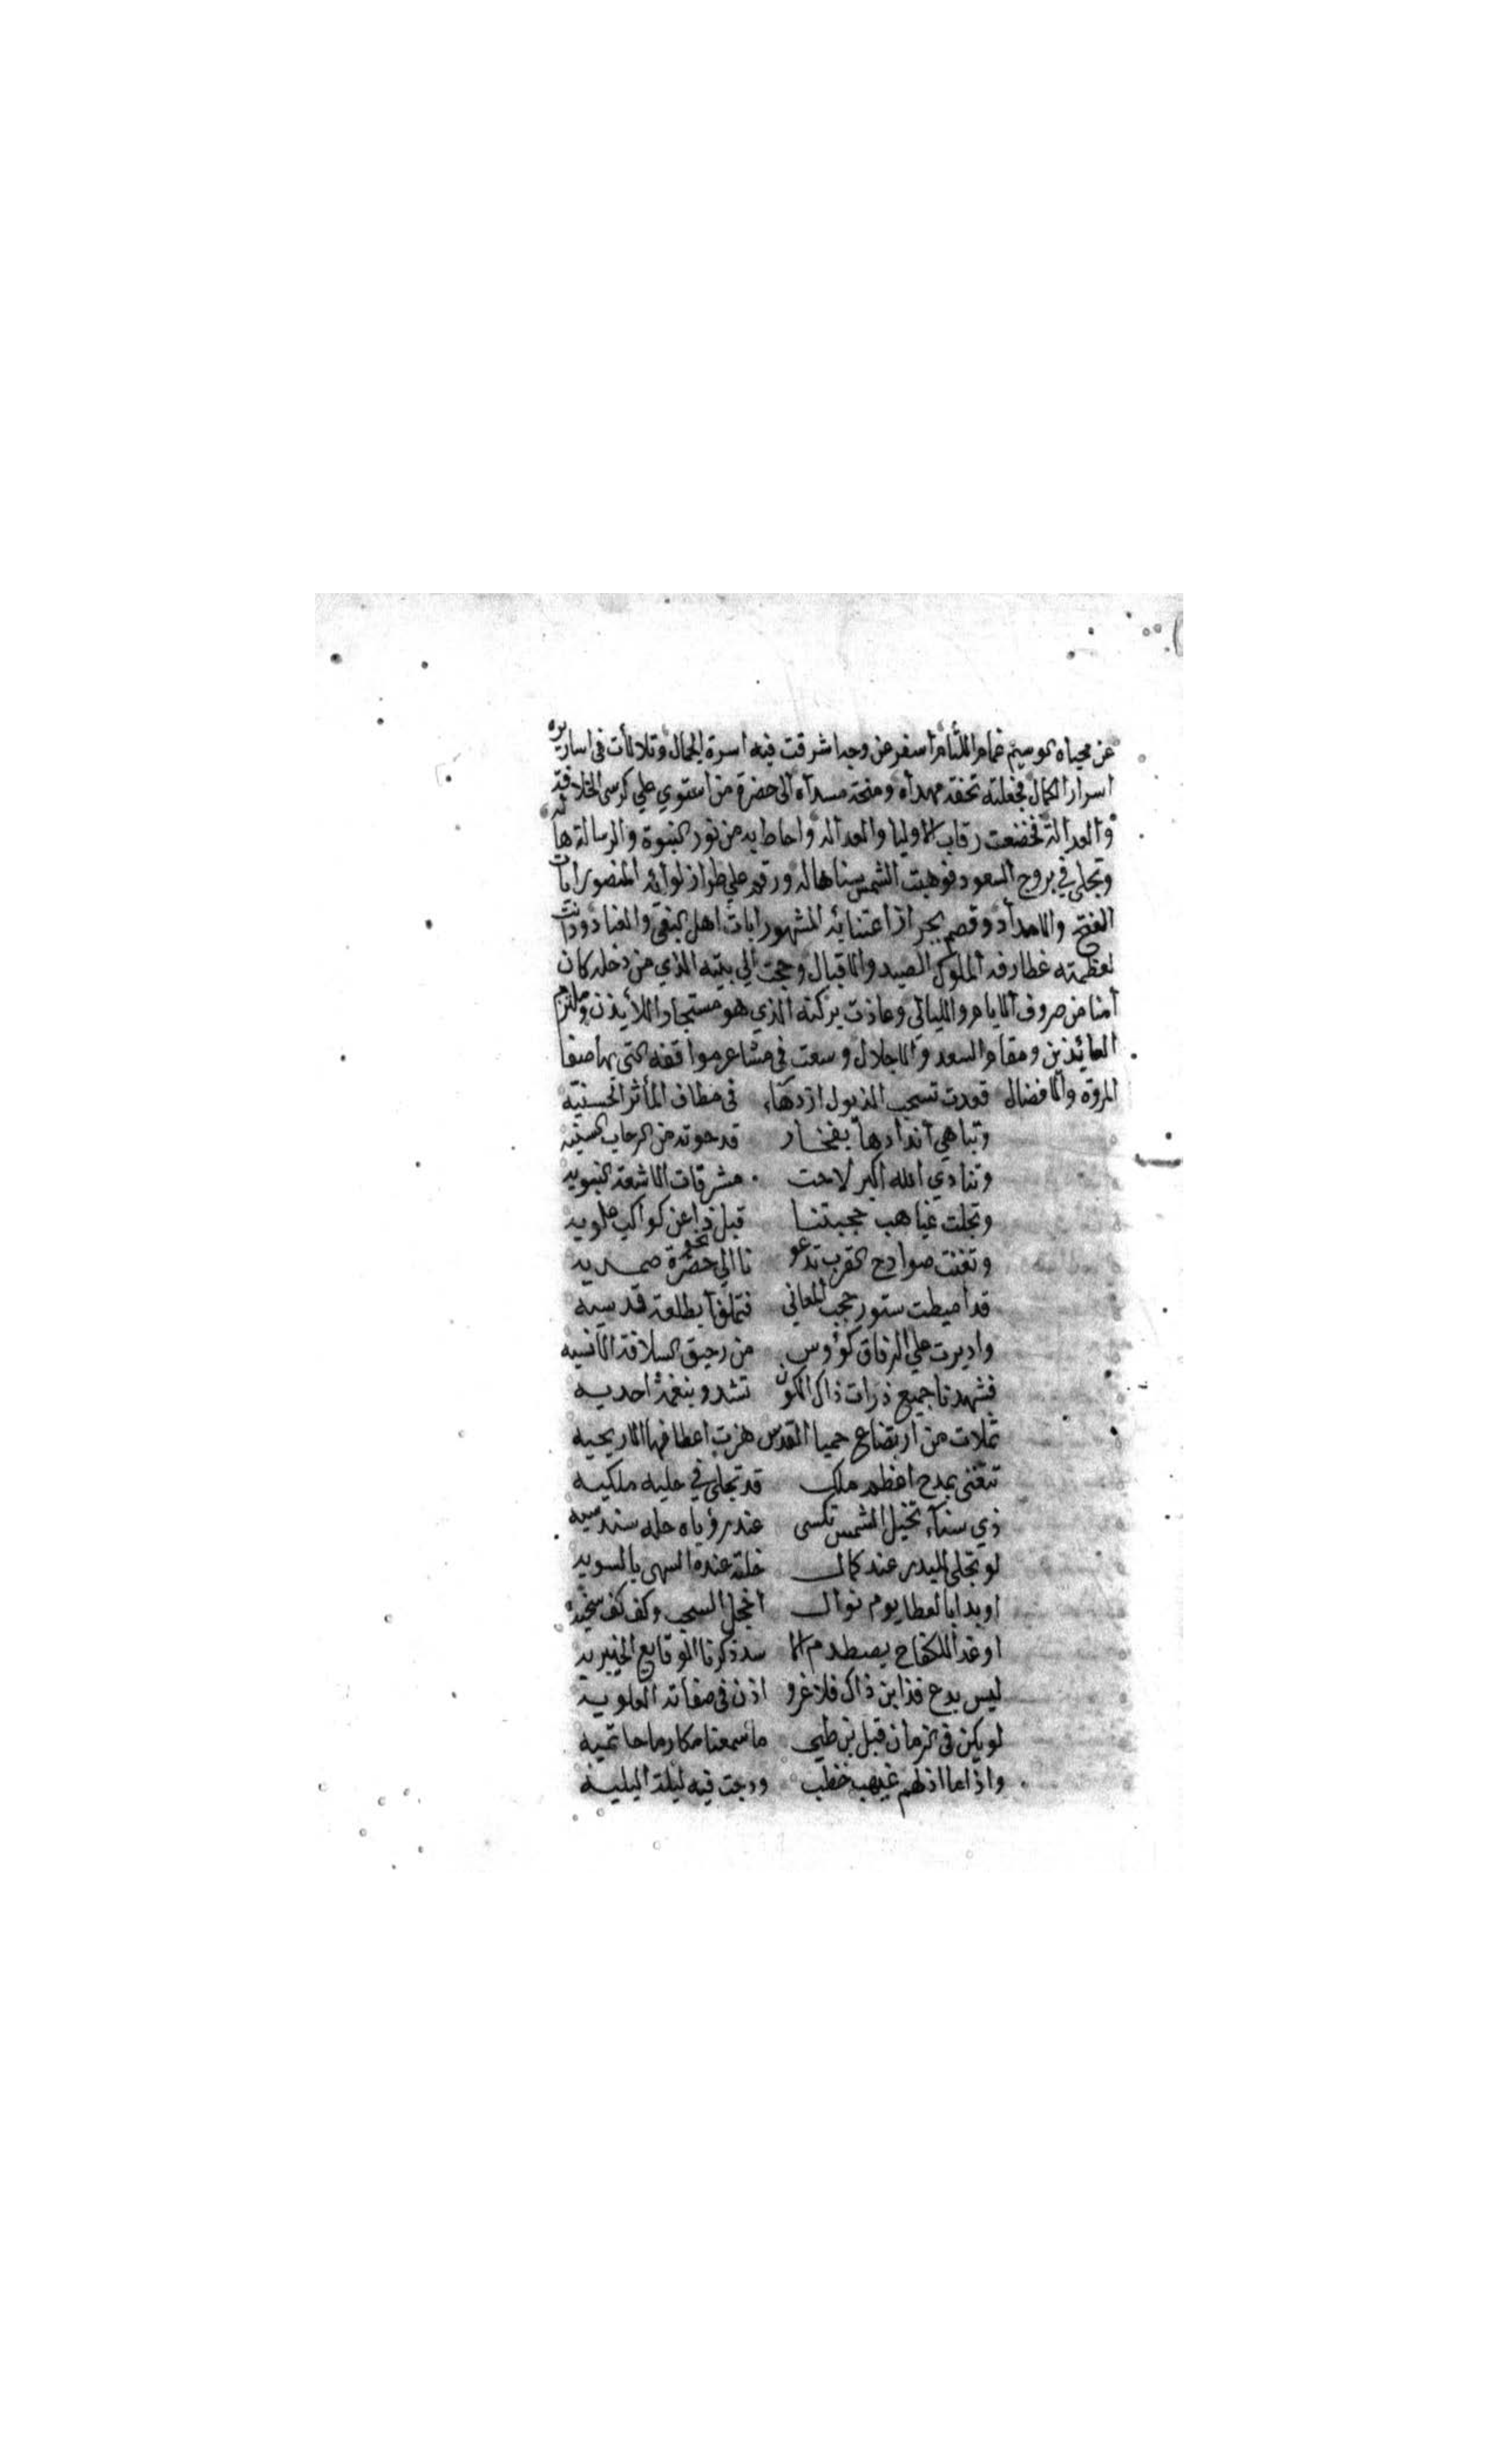 عن محياه الوسيم غمام اللثام اسفر عن وجه اشرقت فيه اسرة الجمال وتلالأت في اساريره
اسرار الكمال فجعلته تحفة مهداة ومنحة مسداة الى حضرة من استوي علي كرسي الخلافة
والعدالة فخضعت رقاب الاوليا والعدا له واحاط به من نور النبوة والرسالة هالة
وتجلى في بروج السعود فوهبت الشمس سناها له ورقم علي طراز لوائه المنصور ايات
الفتح والامداد وقصم بجراز اعتنائه المشهور ايات اهل البغي والعناد ودانت
لعظمته غطارفة الملوك الصيد والاقيال وحجت الي بيته الذي من دخله كان
امنا من صروف الايام والليالي وعاذت بركنه الذي هو مستجار اللائذين وملتزم
العائذين ومقام السعد والاجلال وسعت في مشاعر مواقفه التي بها صفا
المروة والافضال فغدت تسحب الذيول ازدهاء في مطاف المآثر الحسنية
وتباهي اندادها بفخار قد حوته من الرحاب السنيه
وتنادي الله اكبر لاحت مشرقات الاشعة النبويه
وتجلت غياهب حجبتنا قبل ذا عن كواكب علويه
وتغنت صوادح القرب تدعو نا الي نحو حضرة صمديه
قد اميطت ستور حجب المعاني فتملوا بطلعة قدسيه
واديرت علي الرفاق كؤوس من رحيق السلافة الانسيه
فشهدنا جميع ذرات ذاك الكون تشدو بنغمة احديه
ثملات من ارتضاع حميا القدس هزت اعطافها الاريحيه
تتغنى بمدح اعظم ملك قد تجلى في حلية ملكيه
ذي سناء تخيل الشمس تكسى عند رؤياه حلة سندسيه
لو تجلى للبدر عند كمال خلته عنده السهى بالسويه
او بدا بالعطا يوم نوال اخجل السحب وكف كف سخيه
او غدا للكفاح يصطدم الا سد ذكرنا الوقايع الخيبريه
ليس بدع فذا بن ذاك فلا غرو اذن في صفاته العلويه
لو يكن في الزمان قبل بن طي ما سمعنا مكارما حاتميه
واذا ما ادلهم غيهب خطب ودجت فيه ليلة اليليه